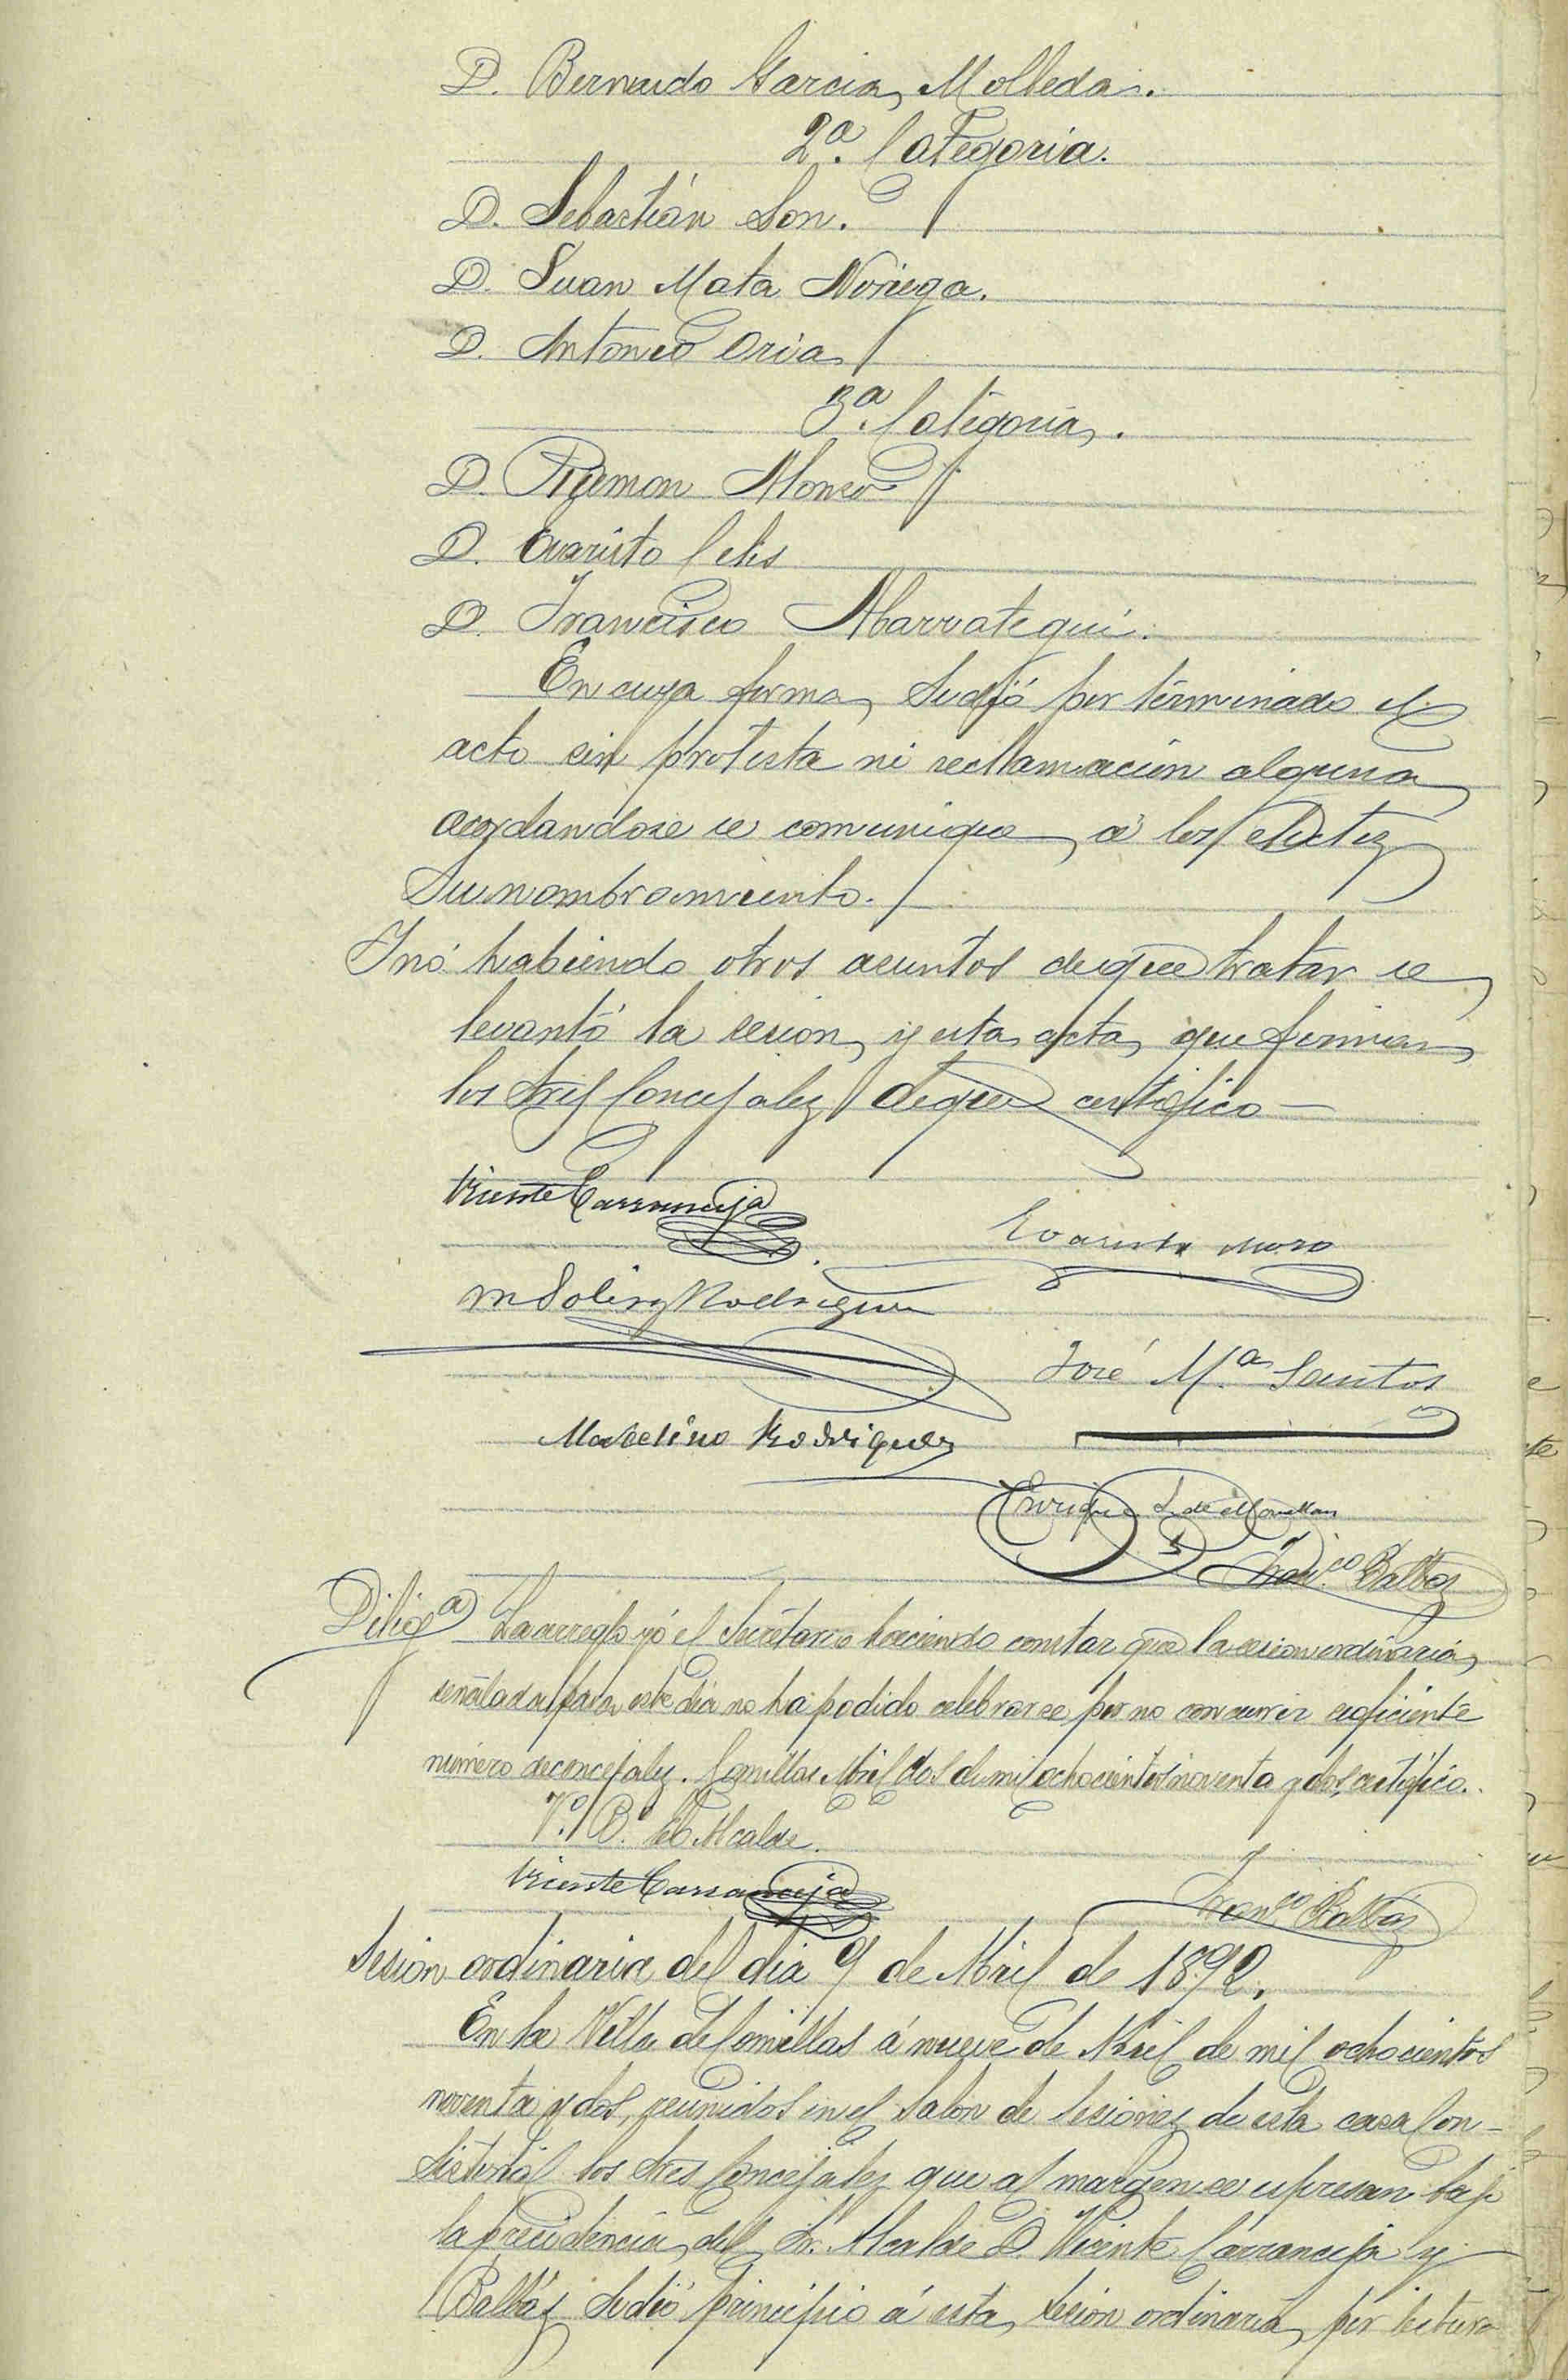 D. Bernardo Garcia Molleda.
2ª. Categoria.
D. Sebastián Son.
D. Juan Mata Noriega.
D. Antonio Oria
3ª. Categoria.
D. Ramon Alonso
D. Evaristo Celis
D. Francisco Abarrategui.
En cuya forma, se dió por terminado el
acto sin protesta ni reclamación alguna
acordandose se comunique á los electos
su nombramiento.
Y no habiendo otros asuntos de que tratar se
levantó la sesion, y esta acta, que firman
los Sres Concejales de que certifico —
Vicente Carranceja
Evaristo Moro
M Solis Rodriguez
José Mª. Santos
Marcelino Rodriguez
Enrique L. de
Franco. Balbás
Diligª La arreglo yó el Secretario haciendo constar que la sesion ordinaria,
señalada para este dia no ha podido celebrarse por no concurrir suficiente
número de concejales. Comillas Abril dos de mil ochocientos noventa y dos, certifico.
Vº. Bº. El Alcalde
Vicente Carranceja
Franco. Balbás
Sesion ordinaria del dia 9 de Abril de 1892.
En la Villa de Comillas á nueve de Abril de mil ochocientos
noventa y dos, reunidos en el Salón de Sesiones de esta casa Con-
sistorial los Sres Concejales que al margen se espresan bajo
la presidencia, del Sr. Alcalde D. Vicente Carranceja y
Balbás se dió principio á esta, sesion ordinaria, por lectura